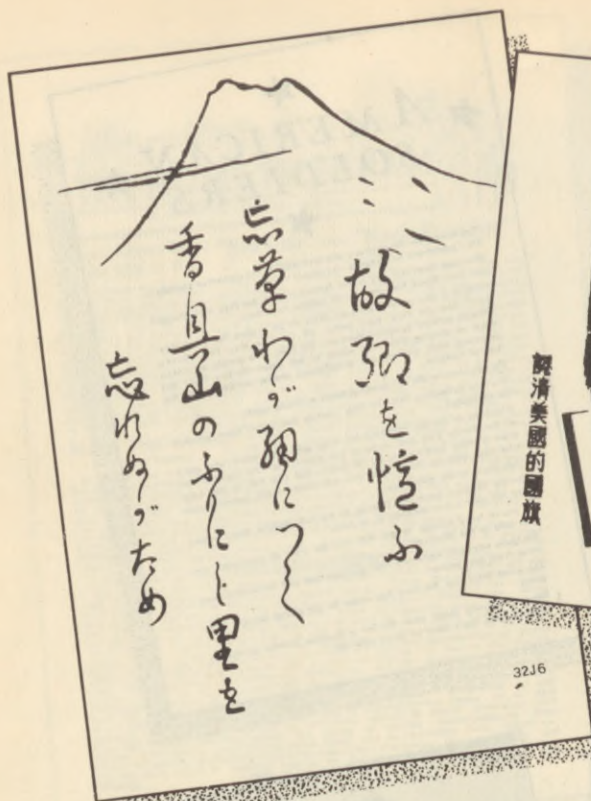 故郷を憶ふ
忘草わが紐につく
香具山のふりにし里を
忘れぬがため
32J6
認清美國的國旗